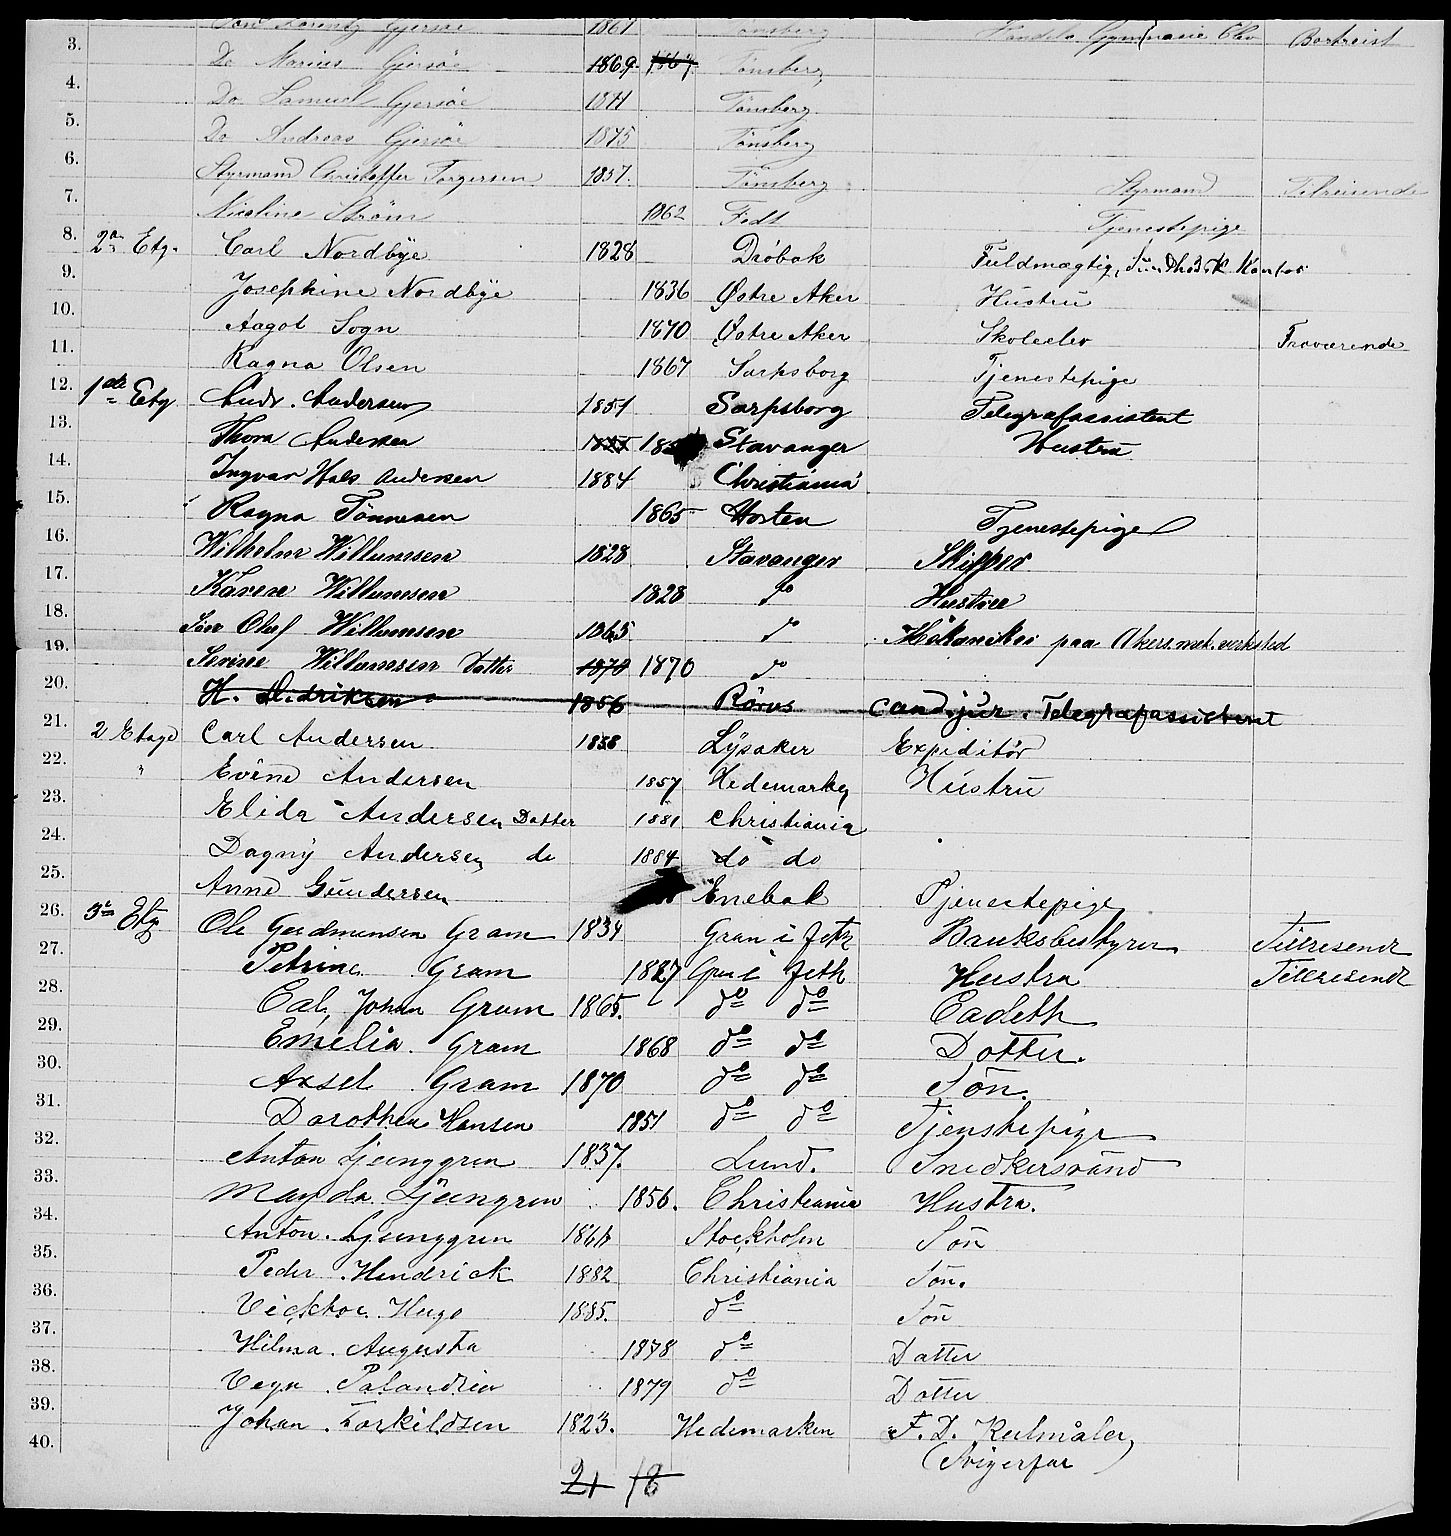 3. Søn Lorentz Gjersøe 1867 Tønsberg Handels Gymnasie Elev Bortreist
4. Do Marius Gjersøe 1869. Tønsberg
5. Do Samuel Gjersøe 1871 Tønsberg
6. Do Andreas Gjersøe 1875 Tønsberg
7. Styrmand Christoffer Torgersen 1857. Tønsberg Styrmand Tilreisende
8. Nicoline Strøm 1862 Fedt Tjenestepige
9. 2n Etg. Carl Nordbye 1828 Drøbak Fuldmægtig, Kontor
10. Josephine Nordbye 1836 Østre Aker Hustru
11. Aagot Sogn 1870 Østre Aker Skoleelev Fraværende
12. Ragna Olsen 1867 Sarpsborg Tjenestepige
13. 1ste Etg Andr. Andersen 1851 Sarpsborg Telegrafassistent
14. Thora Andersen Stavanger Hustru
15. Ingvar Hals Andersen 1884 Christiania
16. Ragna Tønnesen 1865 Horten Tjenestepige
17. Wilhelm Willumsen 1828 Stavanger Skipper
18. Karen Willumsen 1828 do Hustru
19. Søn Oluf Willumsen 1865 do Mekaniker paa Akers mek. verksted
20. Sevine Willumsen Datter 1870 1870 do
21. H. Hendriksen 1856 Røros cand. jur. Telegrafassistent
22. 2 Etage Carl Andersen 1858 Lysaker Expeditør
23. " Evine Andersen 1857 Hedemarken Hustru
24. Elida Andersen Datter 1881 Christiania
25. Dagny Andersen do 1884 do do
26. Anne Gundersen Enebak Tjenestepige
27. 3de Etg Ole Gudmunsen Gram 1834 Gran i Jeth Banksbestyrer Tilreisende
28. Petrine Gram 1827 Gran i Jeth Hustru Tilreisende
Carl Johan Gram 1865. do do Cadeth
29. Emelia. Gram 1868 do do Dotter.
30. Axsel Gram 1870 do do Søn.
31. Dorothea Hansen 1851 do do Tjenstepige
32. Anton Ljunggren 1837. Lund. Snedkersvänd
33. Magda Ljungren 1856. Christiania Hustru.
34. Anton. Ljunggren 1861 Stockholm Søn
35. Peder. Hendrick 1882 Christiania Søn.
36. Vicktor. Hugo 1885. do Søn
37. Hilma. Augusta 1878 do Datter
38. Palandria 1879 do Datter
39. Johan. Torkildsen 1823. Hedemarken F. D. Kulmåler
40. (Svigerfar)
21 18